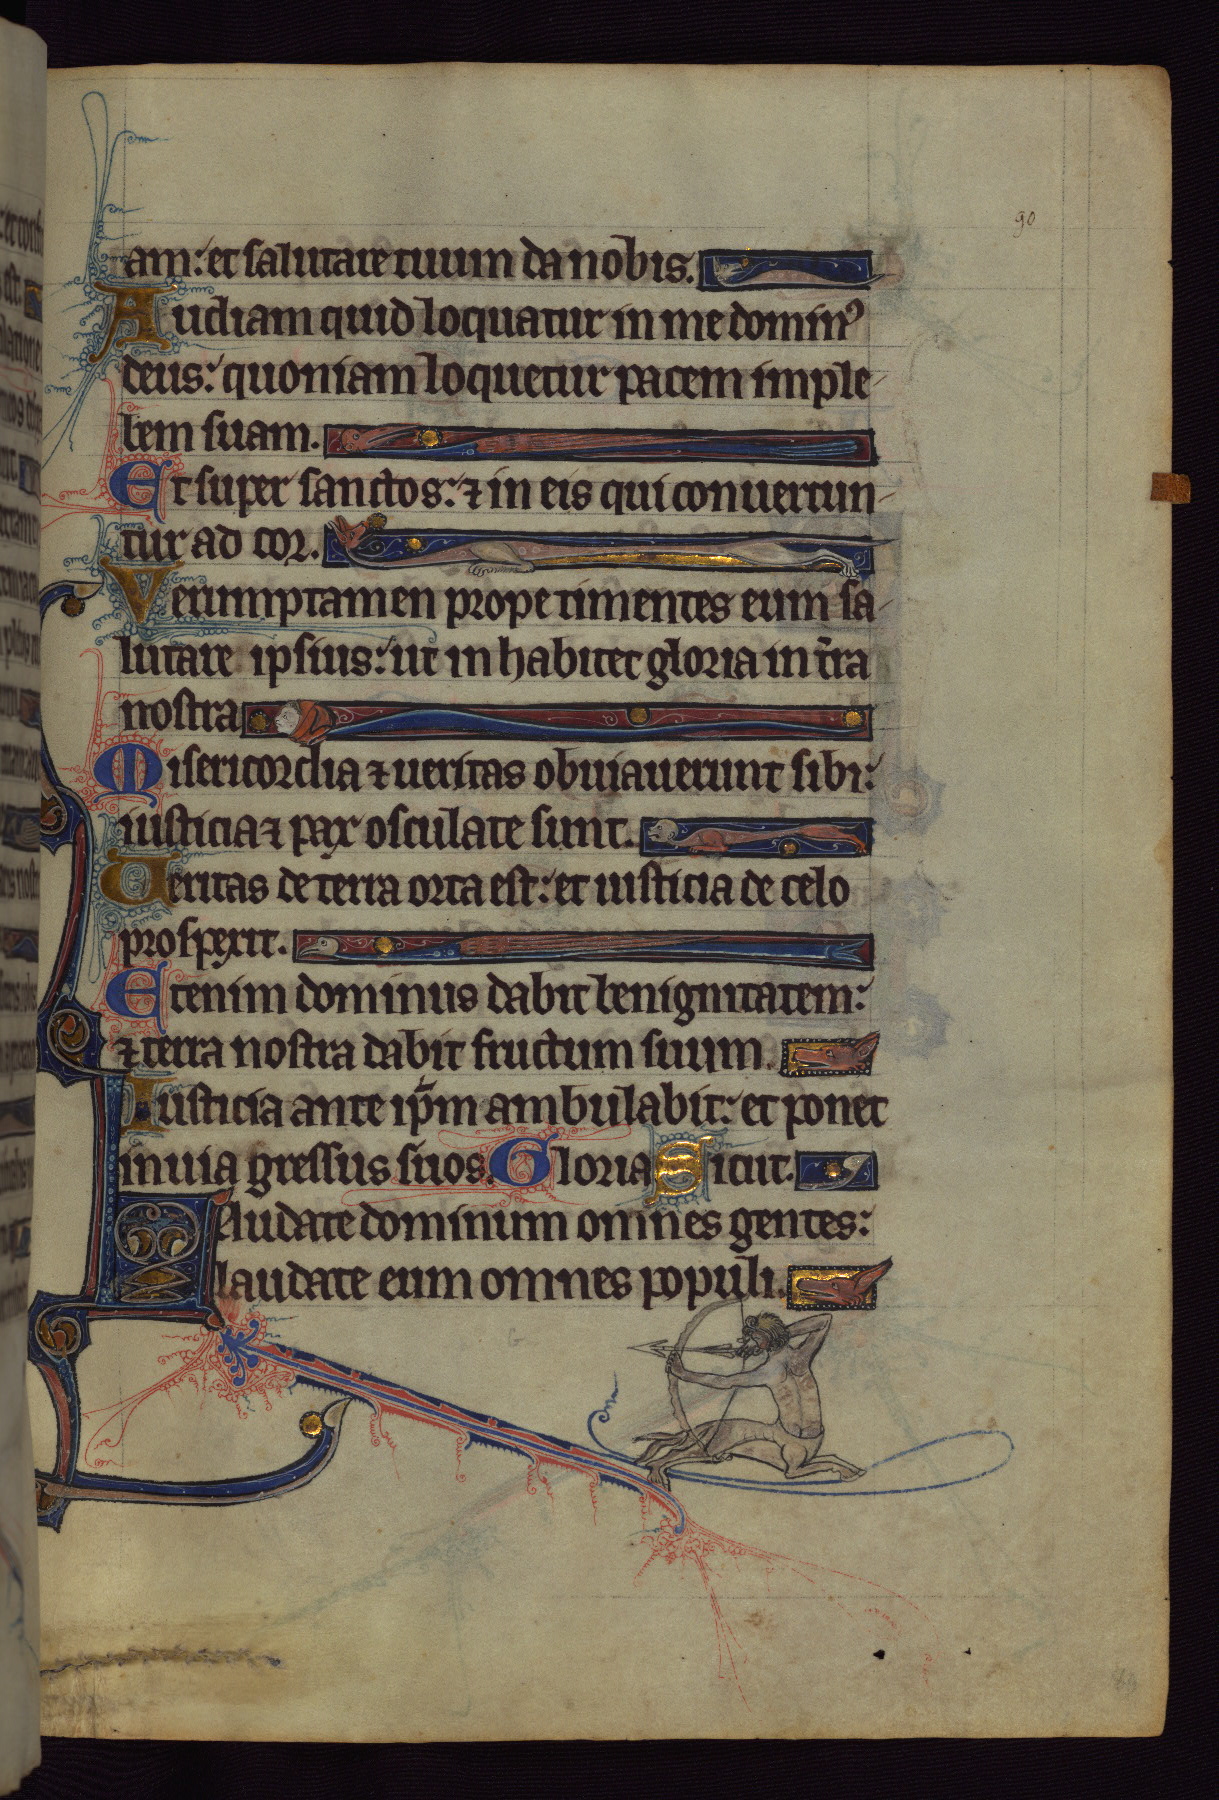 90
am: et salutare tuum da nobis.
Audiam quid loquatur in me dominꝰ
deus: quoniam loquetur pacem in ple-
bem suam.
Et super sanctos: ⁊ in eis qui conuertun-
tur ad cor.
Verumptamen prope timentes eum sa-
lutare ipsius: ut inhabitet gloria in t̄ra
nostra
Misericordia ⁊ ueritas obuiauerunt sibi:
iusticia ⁊ pax osculate sunt.
Ueritas de terra orta est: et iusticia de celo
prospexit.
Etenim dominus dabit benignitatem:
⁊ terra nostra dabit fructum suum.
Iusticia ante ip̄m ambulabit: et ponet
in uia gressus suos. Gloria Sicut.
Laudate dominum omnes gentes:
laudate eum omnes populi.